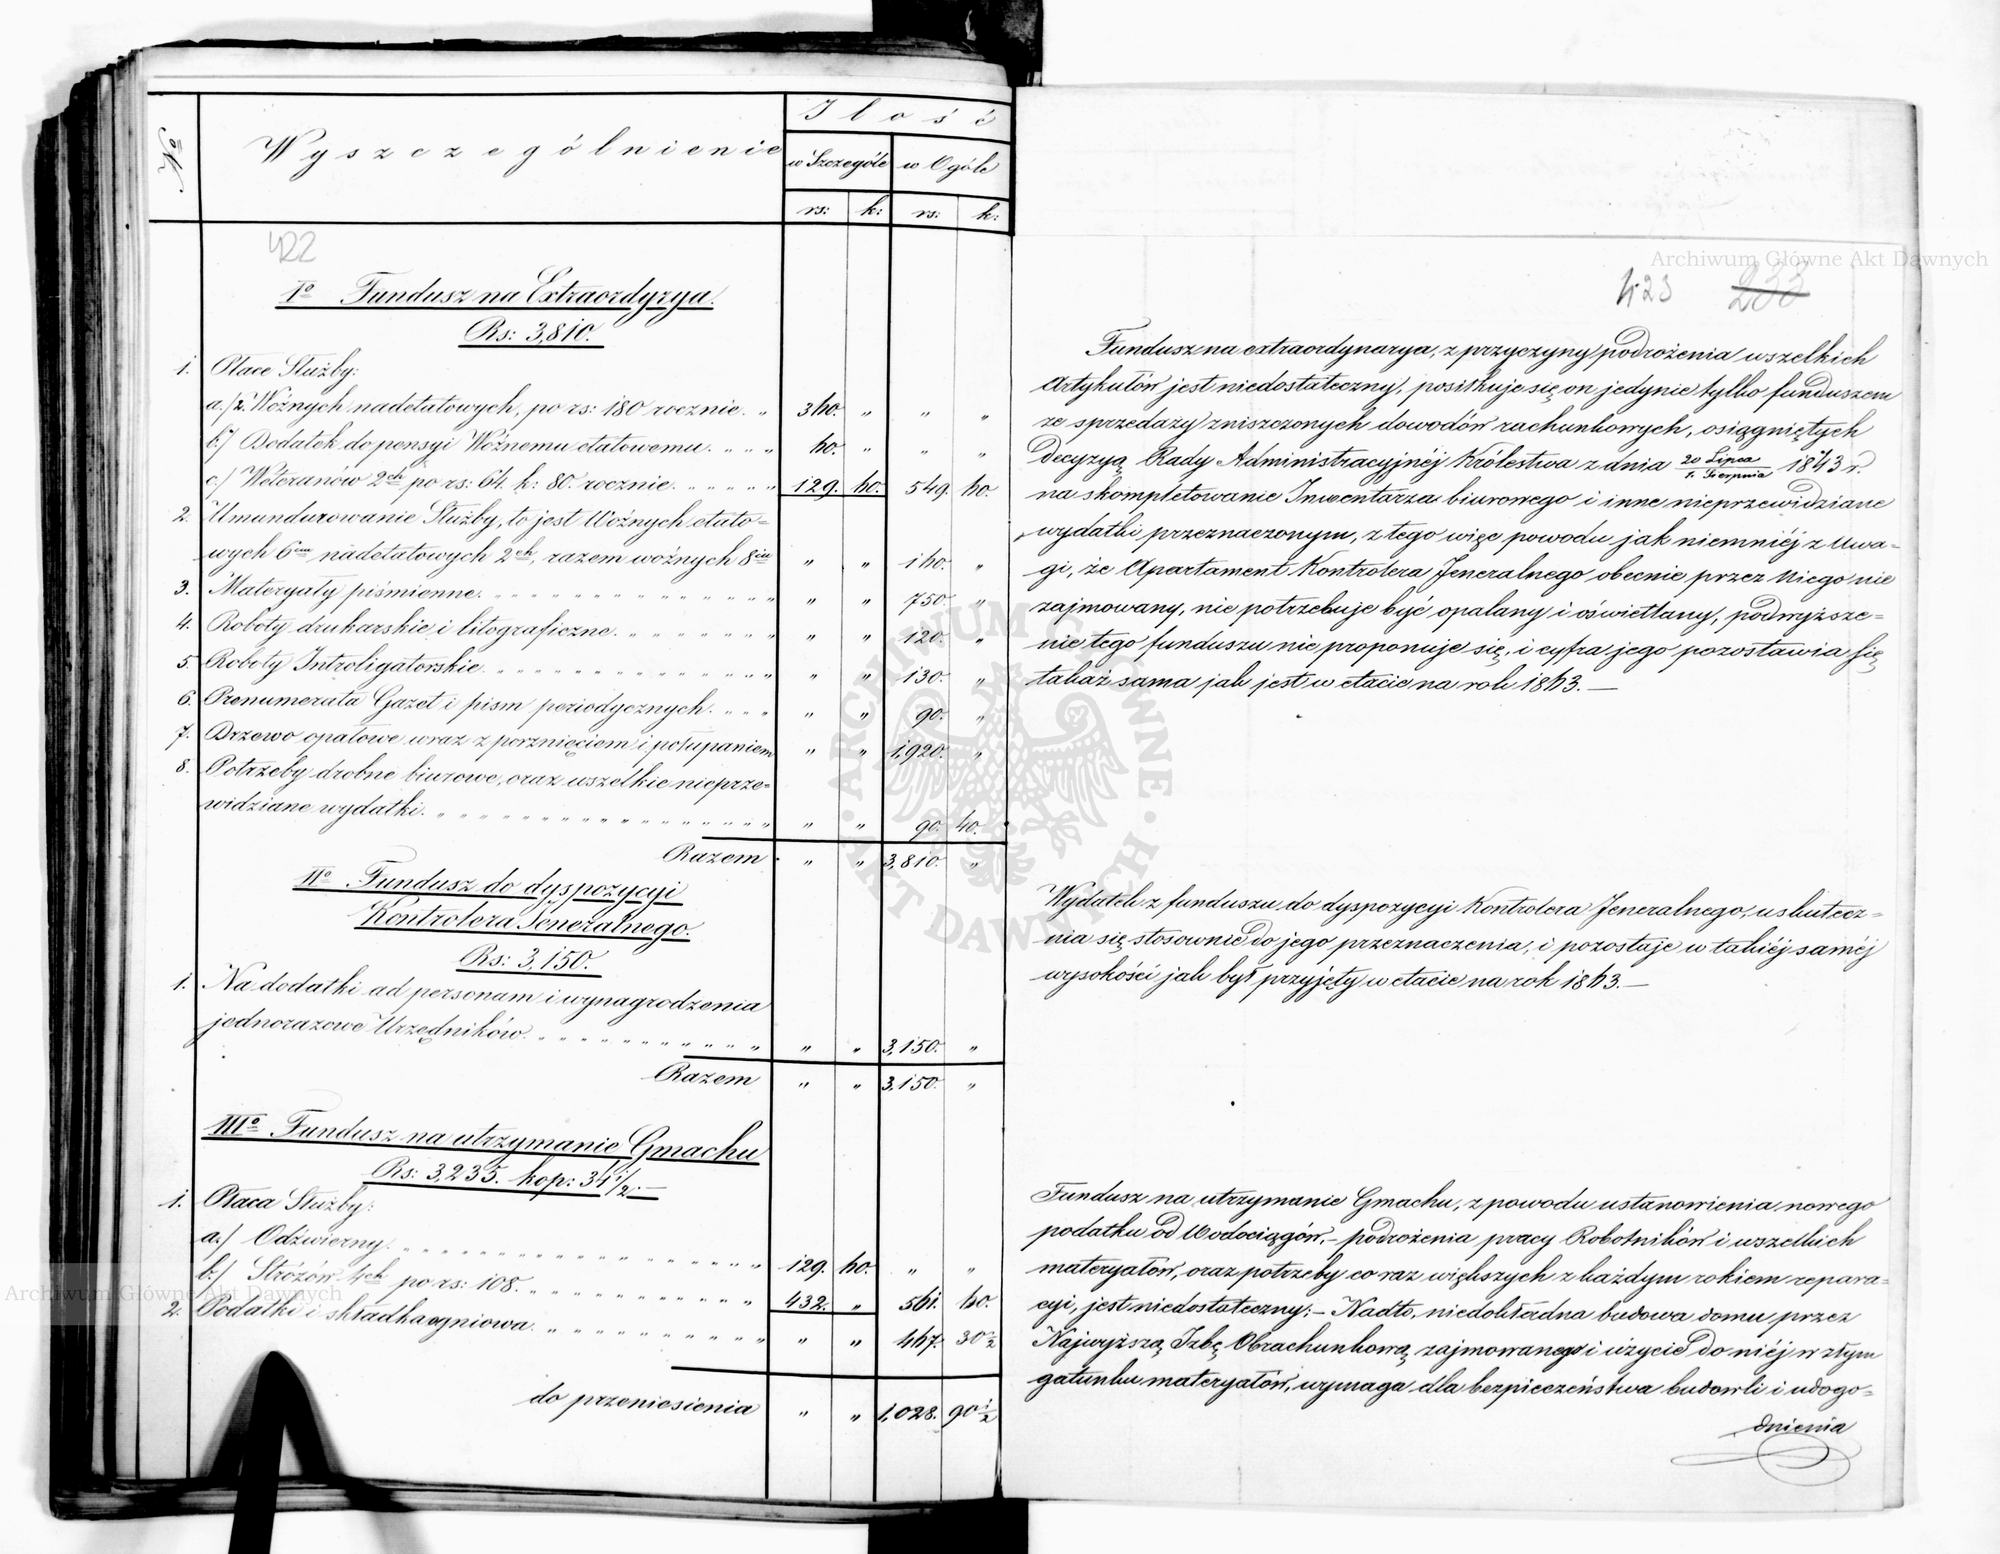 No
Wyszczególnienie
Ilość
w Szczególe
w Ogóle
rs: k: rs: k:
422
Io Fundusz na Extraordynya.
Rs: 3,810.
1. Płace Służby:
a./ 2. Woźnych nadetatowych, po rs: 180 rocznie. „ 360. „ „ „
b./ Dodatek do pensyi Woźnemu etatowemu. „ „ „ 60. „ „ „
c./ Weteranów 2ch po rs: 64. k: 80. rocznie. „ „ „ „ „ 129. 60. 549. 60.
2. Umundurowanie Służby, to jest Woźnych etato=
wych 6ciu nadetatowych 2ch, razem woźnych 8iu „ „ 160. „
3. Materyały piśmienne. „ „ 750. „
4. Roboty drukarskie i litograficzne. „ „ 120. „
5. Roboty Introligatorskie. „ „ 130. „
6. Prenumerata Gazet i pism peryodycznych. „ „ 90. „
7. Drzewo opałowe wraz z porznięciem i połupaniem „ „ 1,920. „
8. Potrzeby drobne biurowe, oraz wszelkie nieprze=
widziane wydatki. „ „ 90. 40.
Razem „ „ 3,810. „
IIo Fundusz do dyspozycyi
Kontrolera Jeneralnego.
Rs: 3,150.
1. Na dodatki ad personam i wynagrodzenia
jednorazowe Urzędników. „ „ 3,150. „
Razem „ „ 3,150. „
IIIo Fundusz na utrzymanie Gmachu
Rs: 3,235. kop: 34 1/2.—
1. Płaca Służby:
a./ Odźwierny. 129. 60. „ „
b./ Stróżów 4ch po rs: 108. 432. „ 561. 60.
2. Podatki i składka ogniowa. „ „ 467. 30 1/2
do przeniesienia „ „ 1,028. 90 1/2
Archiwum Główne Akt Dawnych
423 233
Fundusz na extraordynarya, z przyczyny podrożenia wszelkich
Artykułów jest niedostateczny, posiłkuje się on jedynie tylko funduszem
ze sprzedaży zniszczonych dowodów rachunkowych, osiągniętych
Decyzyą Rady Administracyjnéj Królestwa z dnia 20 Lipca / 1. Sierpnia 1843 r.
na skompletowanie Inwentarza biurowego i inne nieprzewidziane
wydatki, przeznaczonym, z tego więc powodu jak niemniéj z Uwa=
gi, że Apartament Kontrolera Jeneralnego obecnie przez Niego nie
zajmowany, nie potrzebuje być opalany i oświetlany, podwyższe=
nie tego funduszu nie proponuje się, i cyfra jego pozostawia się
takaż sama jak jest w etacie na rok 1863.—
Wydatek z funduszu do dyspozycyi Kontrolera Jeneralnego, uskutecz=
nia się stosownie do jego przeznaczenia, i pozostaje w takiéj saméj
wysokości jak był przyjęty w etacie na rok 1863.—
Fundusz na utrzymanie Gmachu, z powodu ustanowienia nowego
podatku od Wodociągów,— podrożenia pracy Robotników i wszelkich
materyałów, oraz potrzeby co raz większych z każdym rokiem repara=
cyi, jest niedostateczny;— Nadto, niedokładna budowa domu przez
Najwyższą Izbę Obrachunkową zajmowanego i użycie do niéj w złym
gatunku materyałów, wymaga dla bezpieczeństwa budowli i udogo=
dnienia
ARCHIWUM GŁÓWNE AKT DAWNYCH
Archiwum Główne Akt Dawnych